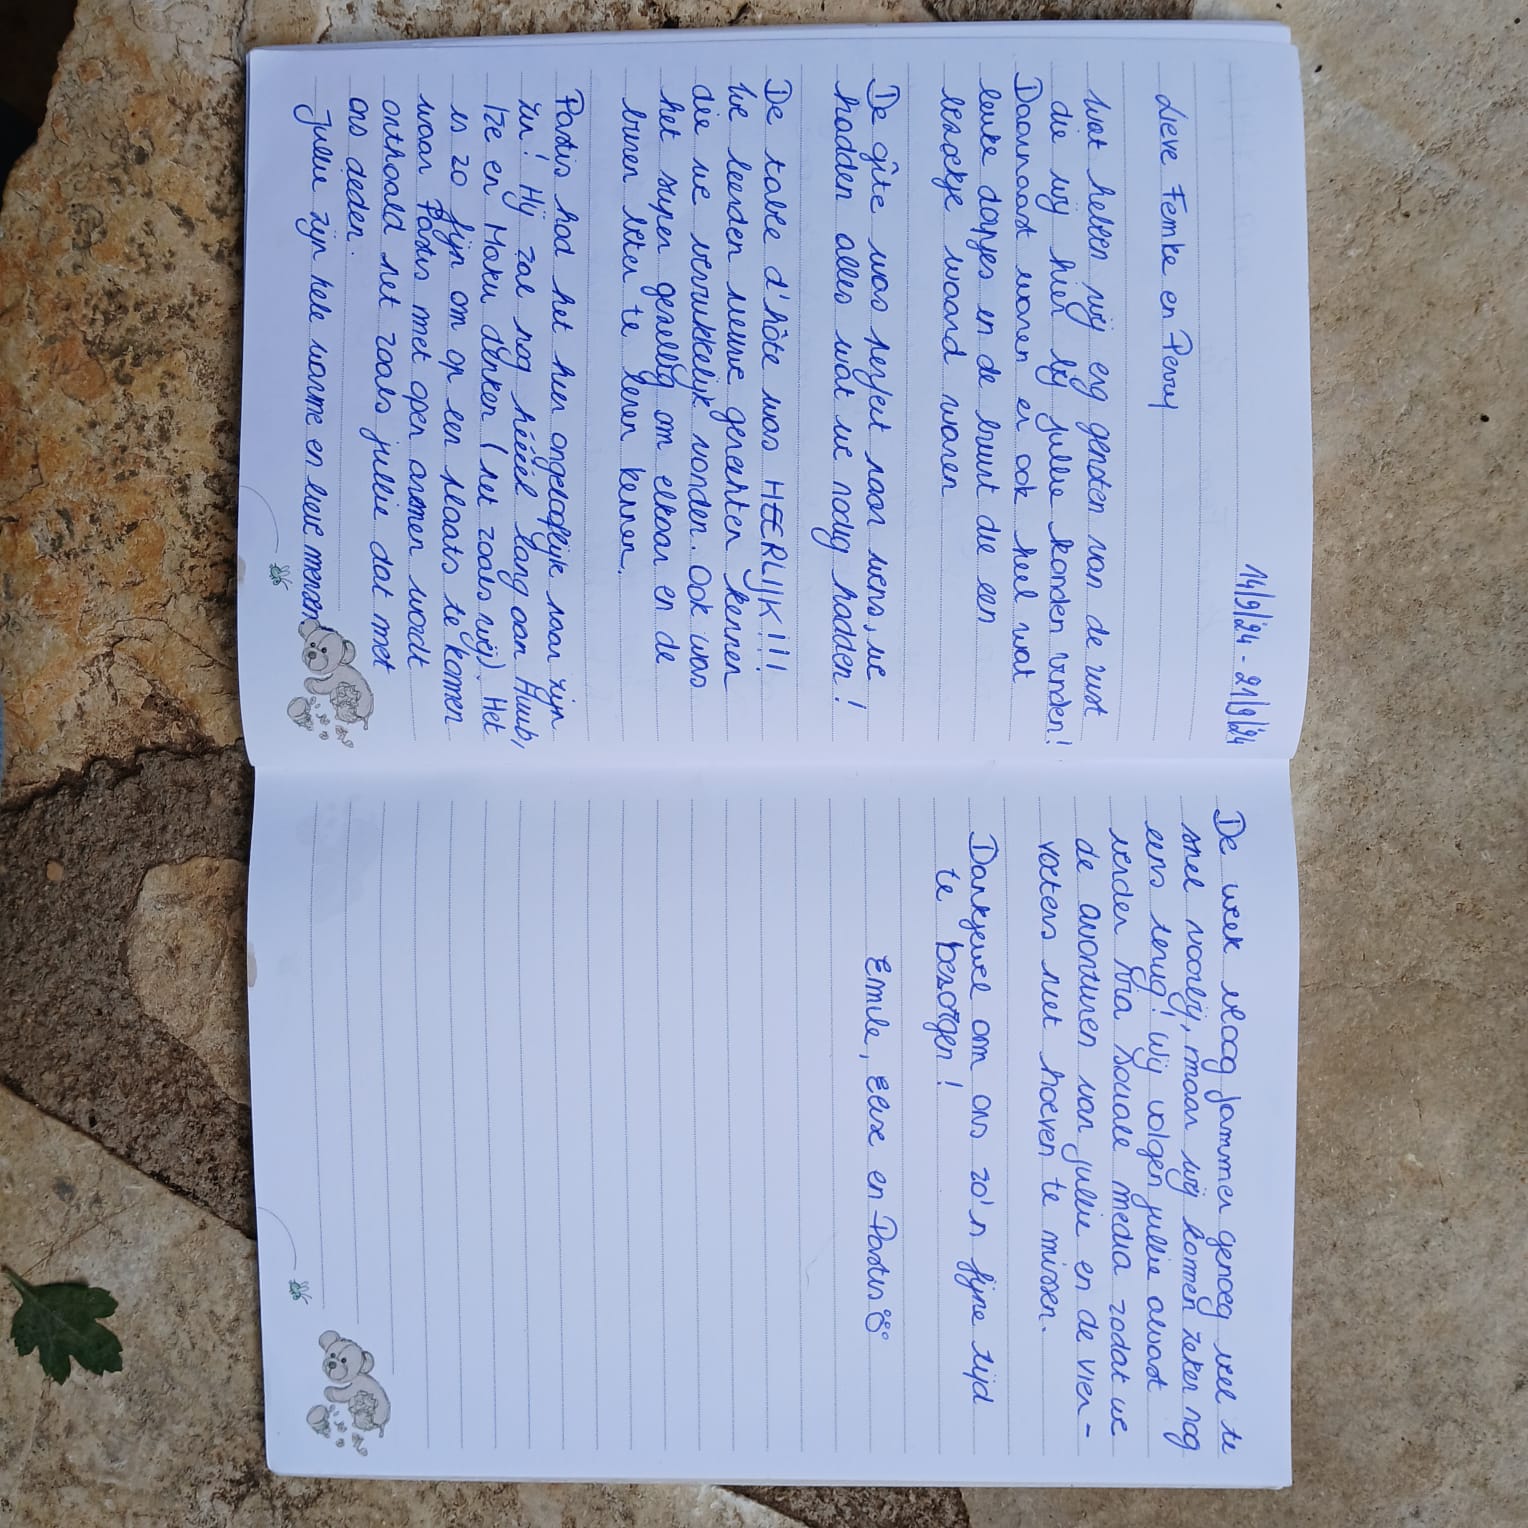 14/9/'24 - 21/9/'24
Lieve Femke en Perry
Wat hebben wij erg genoten van de rust
die wij hier bij jullie konden vinden!
Daarnaast waren er ook heel wat
leuke dorpjes in de buurt die een
bezoekje waard waren
De gîte was perfect naar wens, we
hadden alles wat we nodig hadden!
De table d'hôte was HEERLIJK!!!
We leerden nieuwe gerechten kennen
die we verrukkelijk vonden. Ook was
het super gezellig om elkaar en de
buren beter te leren kennen.
Pastis had het hier ongelooflijk naar zijn
zin! Hij zal nog hééél lang aan Huub,
Ize en Maku denken (net zoals wij). Het
is zo fijn om op een plaats te komen
waar Pastis met open armen wordt
onthaald net zoals jullie dat met
ons deden.
Jullie zijn hele warme en lieve mensen.
De week vloog jammer genoeg veel te
snel voorbij, maar wij komen zeker nog
eens terug! Wij volgen jullie alvast
verder via sociale media zodat we
de avonturen van jullie en de vier-
voeters niet hoeven te missen.
Dankjewel om ons zo'n fijne tijd
te bezorgen!
Emile, en Pastis